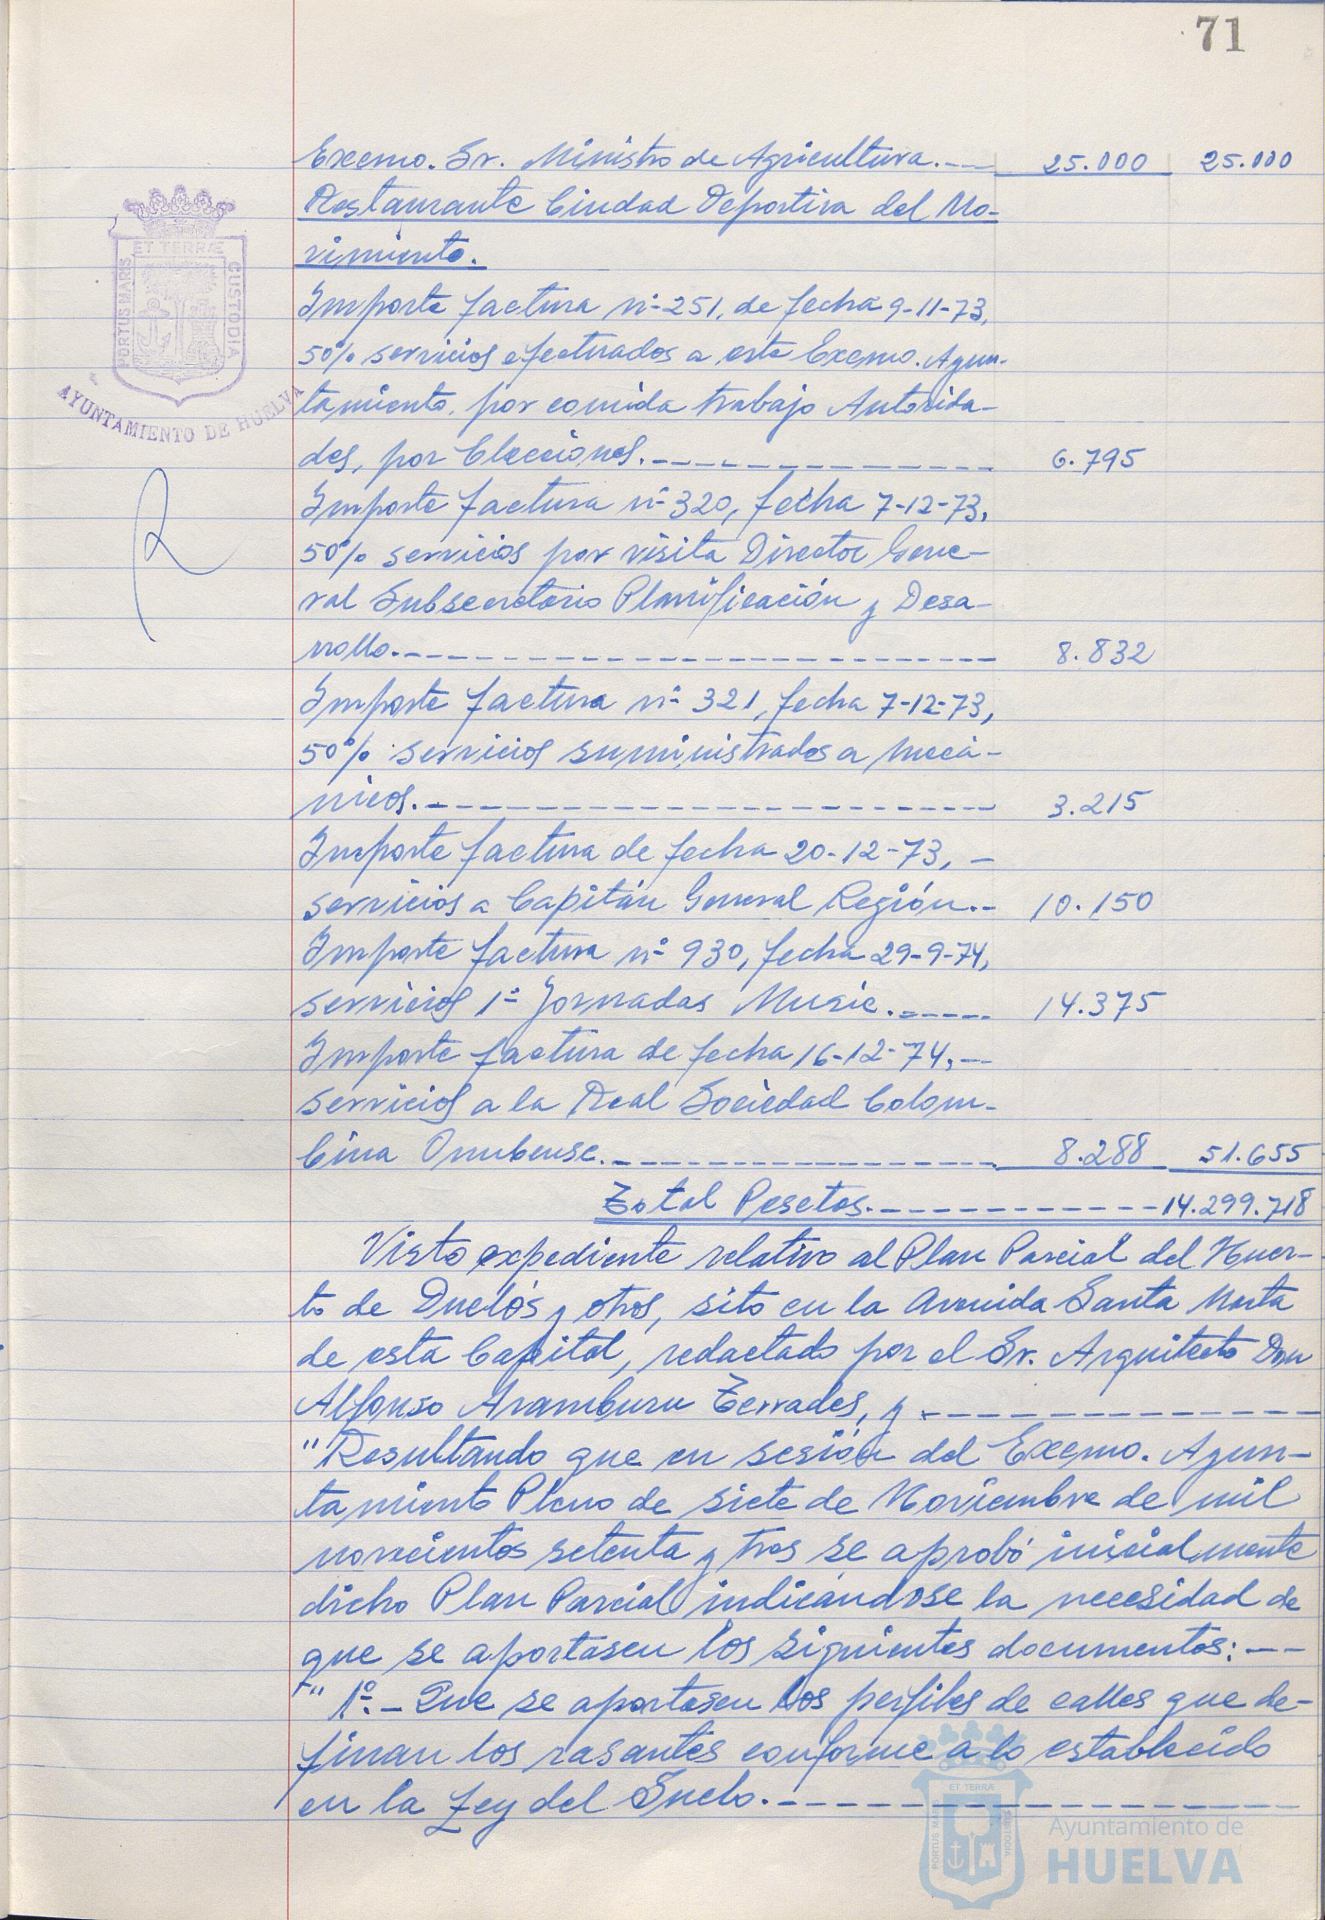 71
Excmo. Sr. Ministro de Agricultura.-- 25.000 25.000
Restaurante Ciudad Deportiva del Mo-
vimiento.
Importe factura nº 251, de fecha 9-11-73,
50% servicios efectuados a este Excmo. Ayun-
tamiento, por comida trabajo Autorida-
des, por Elecciones.------------ 6.795
Importe factura nº 320, fecha 7-12-73,
50% servicios por visita Director Gene-
ral Subsecretario Planificación y Desa-
rrollo.------------ 8.832
Importe factura nº 321, fecha 7-12-73,
50% servicios suministrados a mecá-
nicos.------------ 3.215
Importe factura de fecha 20-12-73, -
servicios a Capitán General Región.- 10.150
Importe factura nº 930, fecha 29-9-74,
servicios 1ª Jornadas Music.----- 14.375
Importe factura de fecha 16-12-74,--
servicios a la Real Sociedad Colom-
bina Onubense.------------ 8.288 51.655
Total Pesetas.------------14.299.718
Visto expediente relativo al Plan Parcial del Huer-
to de Duclós y otros, sito en la Avenida Santa Marta
de esta Capital, redactado por el Sr. Arquitecto Don
Alfonso Aramburu Terrades, y ------------
"Resultando que en sesión del Excmo. Ayun-
tamiento Pleno de siete de Noviembre de mil
novecientos setenta y tres se aprobó inicialmente
dicho Plan Parcial indicándose la necesidad de
que se aportasen los siguientes documentos:--
" 1º.- Que se aportasen los perfiles de calles que de-
finan los rasantes conforme a lo establecido
en la Ley del Suelo.------------
PORTUS MARIS ET TERRÆ CUSTODIA
AYUNTAMIENTO DE HUELVA
PORTUS MARIS ET TERRÆ CUSTODIA
Ayuntamiento de
HUELVA